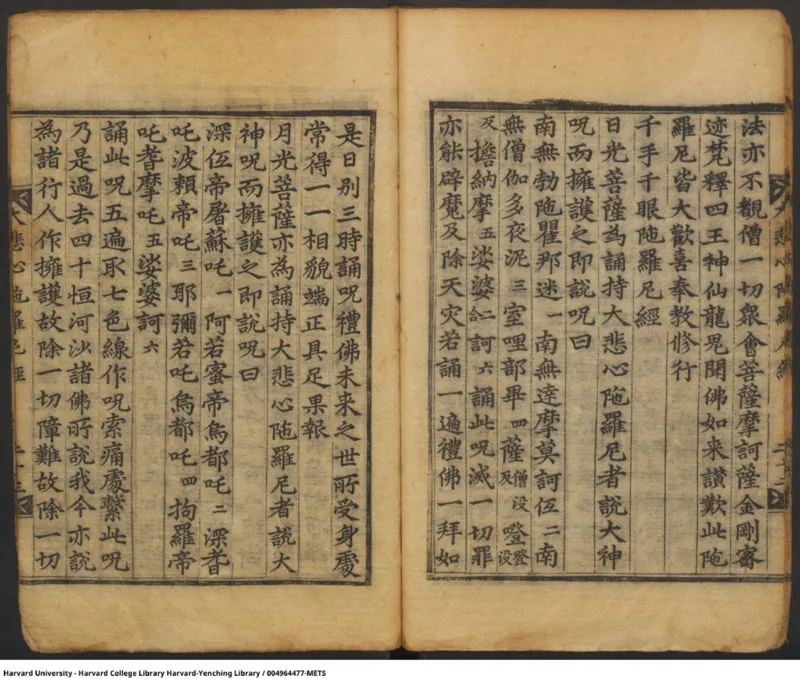 法亦不觀僧一切衆會菩薩摩訶薩金剛密
迹梵釋四王神仙龍鬼聞佛如来讃歎此陁
羅尼皆大歡喜奉教修行
千手千眼陁羅尼經
日光菩薩為誦持大悲心陁羅尼者說大神
呪而擁護之即說呪曰
南無勃陁瞿那迷一南無達摩莫訶伍二南
無僧伽多夜泥三室哩部畢四薩僧没及嗢登没
及擔納摩五娑婆合二訶六誦此呪滅一切罪
亦能辟魔及除天灾若誦一遍禮佛一拜如
大悲心陁羅尼經 二十二
是日别三時誦呪禮佛未来之世所受身處
常得一一相貌端正具足果報
月光菩薩亦為誦持大悲心陁羅尼者說大
神呪而擁護之即說呪曰
深伍帝屠蘇吒一阿若蜜帝烏都吒二深耆
吒波頼帝吒三耶彌若吒烏都吒四拘羅帝
吒耆摩吒五娑婆訶六
誦此呪五遍取七色線作呪索痛處繫此呪
乃是過去四十恒河沙諸佛所說我今亦說
為諸行人作擁護故除一切障難故除一切
大悲心陁羅尼經 二十三
Harvard University - Harvard College Library Harvard-Yenching Library / 004964477-METS